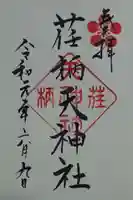 奉拝
荏柄天神社
令和元年六月九日
荏
柄